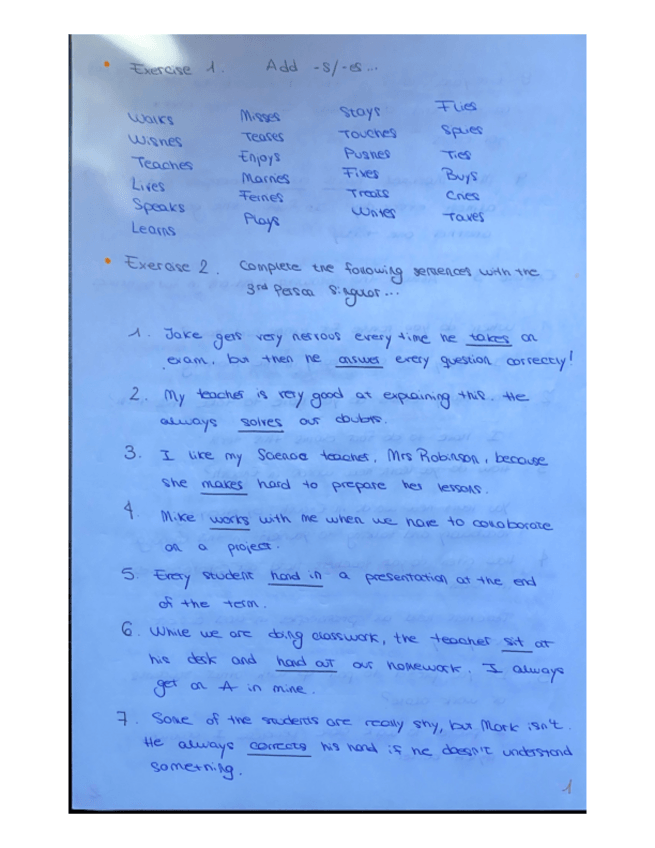 Exercise 1. Add -s/-es...
Walks Misses Stays Flies
Wishes Teases Touches Spies
Teaches Enjoys Pushes Ties
Lives Marries Fixes Buys
Speaks Ferries Treats Cries
Learns Plays Waxes Taxes
Exercise 2. Complete the following sentences with the
3rd Person Singular...
1. Jake gets very nervous every time he takes an
exam, but then he answer every question correctly!
2. My teacher is very good at explaining this. He
always solves our doubts.
3. I like my Science teacher, Mrs Robinson, because
she makes hard to prepare her lessons.
4. Mike works with me when we have to collaborate
on a project.
5. Every student hand in a presentation at the end
of the term.
6. While we are doing classwork, the teacher sit at
his desk and hand out our homework. I always
get an A in mine.
7. Some of the students are really shy, but Mark isn't.
He always corrects his hand if he doesn't understand
something.
1